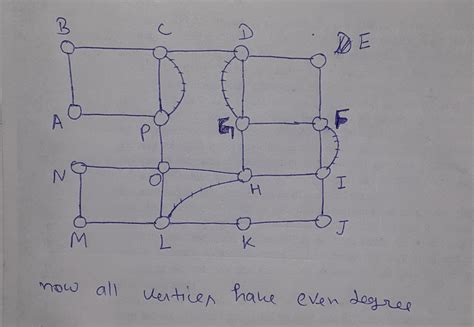 B C D E
A P G F
N O H I
M L K J
now all vertices have even degree